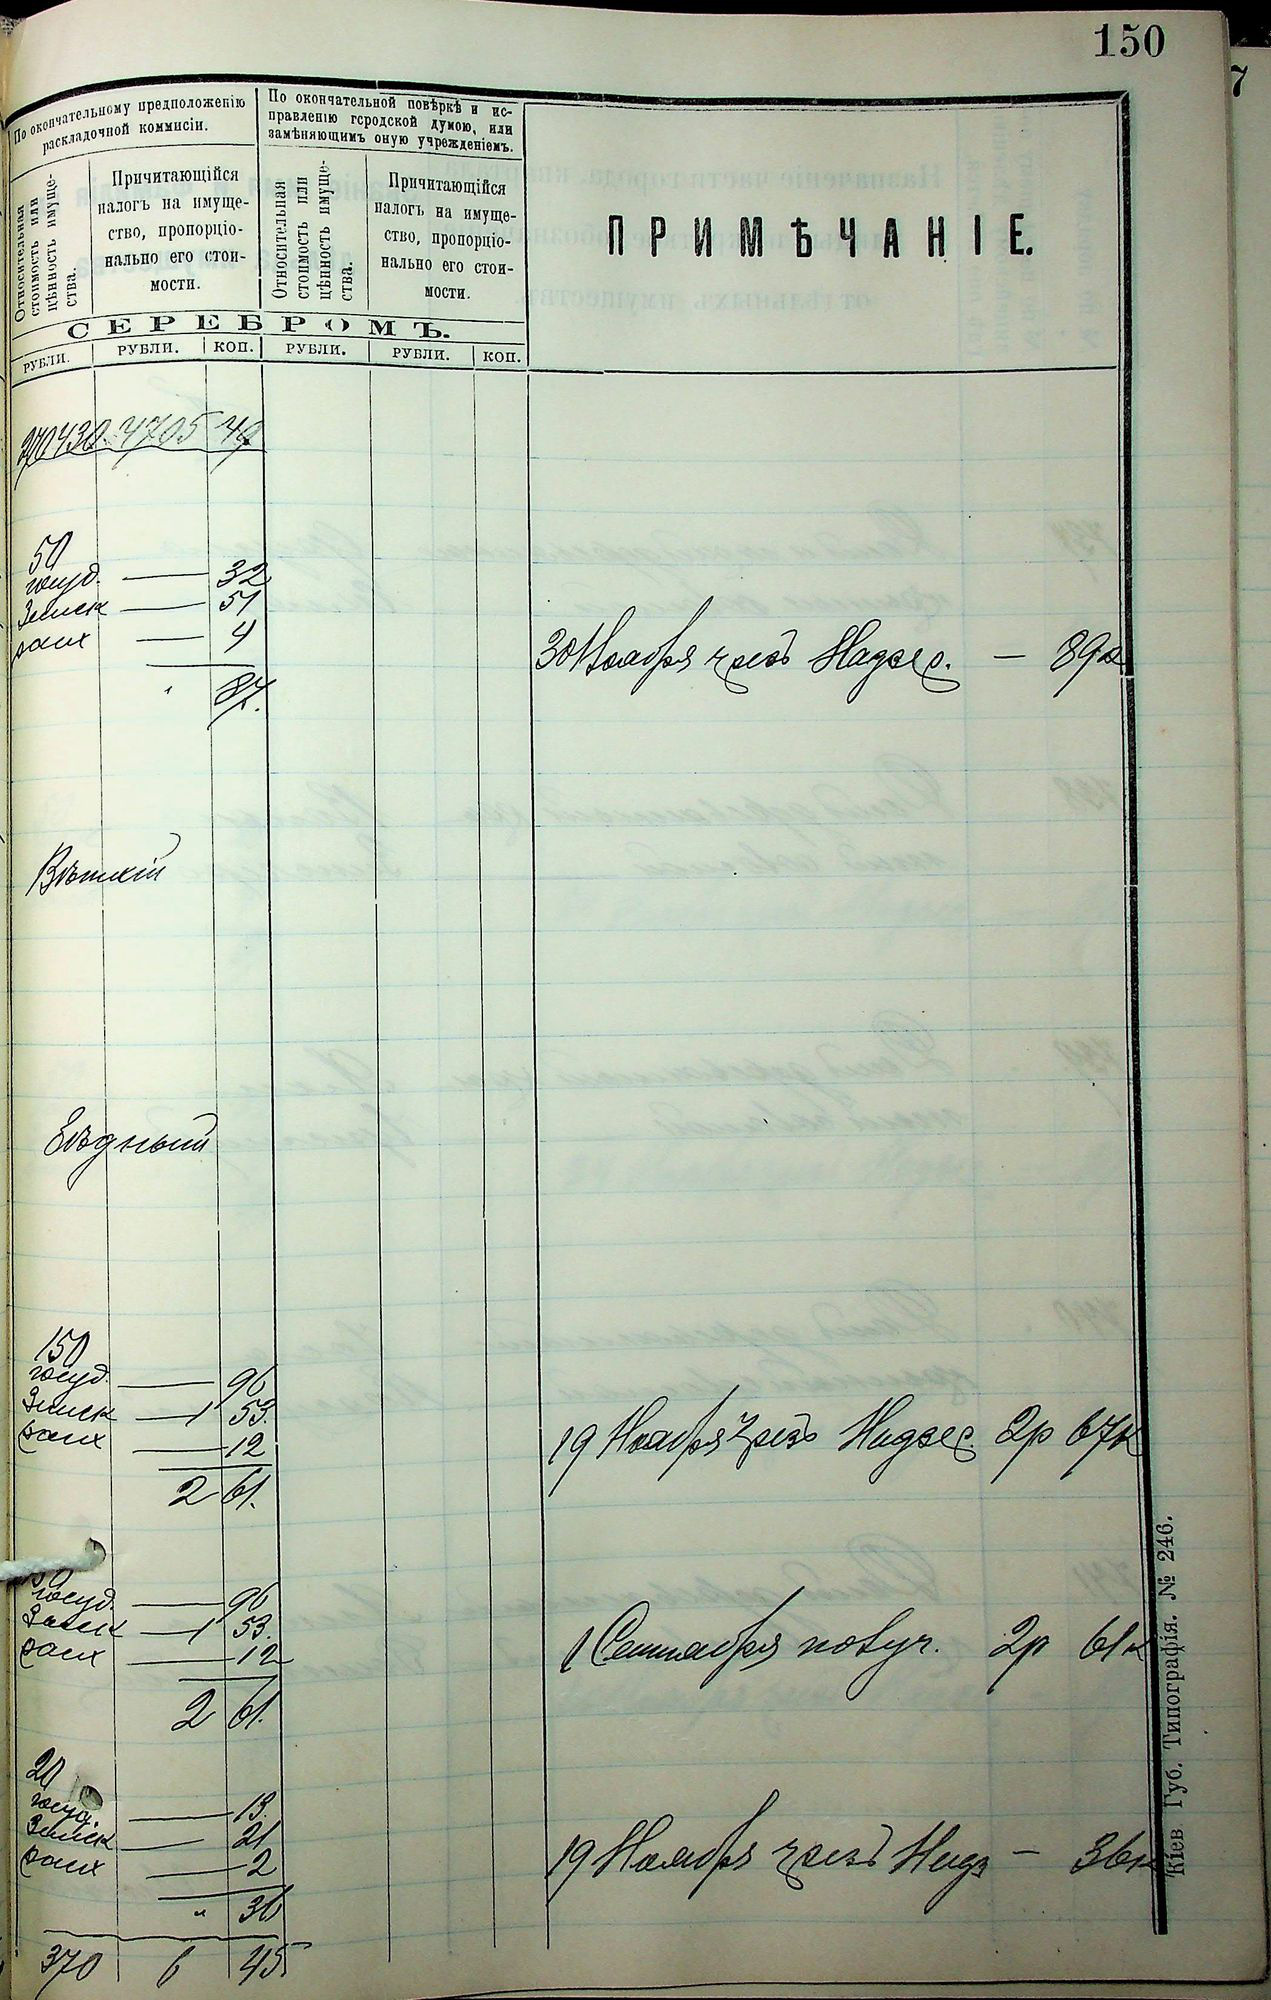 150
7
По окончательному предположенію
раскладочной коммисіи.
По окончательной повѣркѣ и ис-
правленію городской думою, или
замѣняющимъ оную учрежденіемъ.
Относительная
стоимость или
цѣнность имуще-
ства.
Причитающійся
налогъ на имуще-
ство, пропорціо-
нально его стои-
мости.
Относительная
стоимость или
цѣнность имуще-
ства.
Причитающійся
налогъ на имуще-
ство, пропорціо-
нально его стои-
мости.
ПРИМѢЧАНІЕ.
СЕРЕБРОМЪ.
РУБЛИ. РУБЛИ. КОП. РУБЛИ. РУБЛИ. КОП.
4705 49
50
госуд. — 32
Земск — 51
4
" 87.
30 Ноября чрезъ Надзс. — 89к
Вѣткій
Бѣдный
150
госуд. — 96
Земск — 1 53.
— 12
2 61.
19 Ноября чрезъ Надзс. 2р 67к
госуд. — 96
Земск — 1 53.
— 12
2 61.
1 Сентября 2р 61к
20
госуд. — 13.
Земск — 21
— 2
" 36
19 Ноября чрезъ Надз — 36к
370 6 45
Кіев Губ. Типографія. № 246.